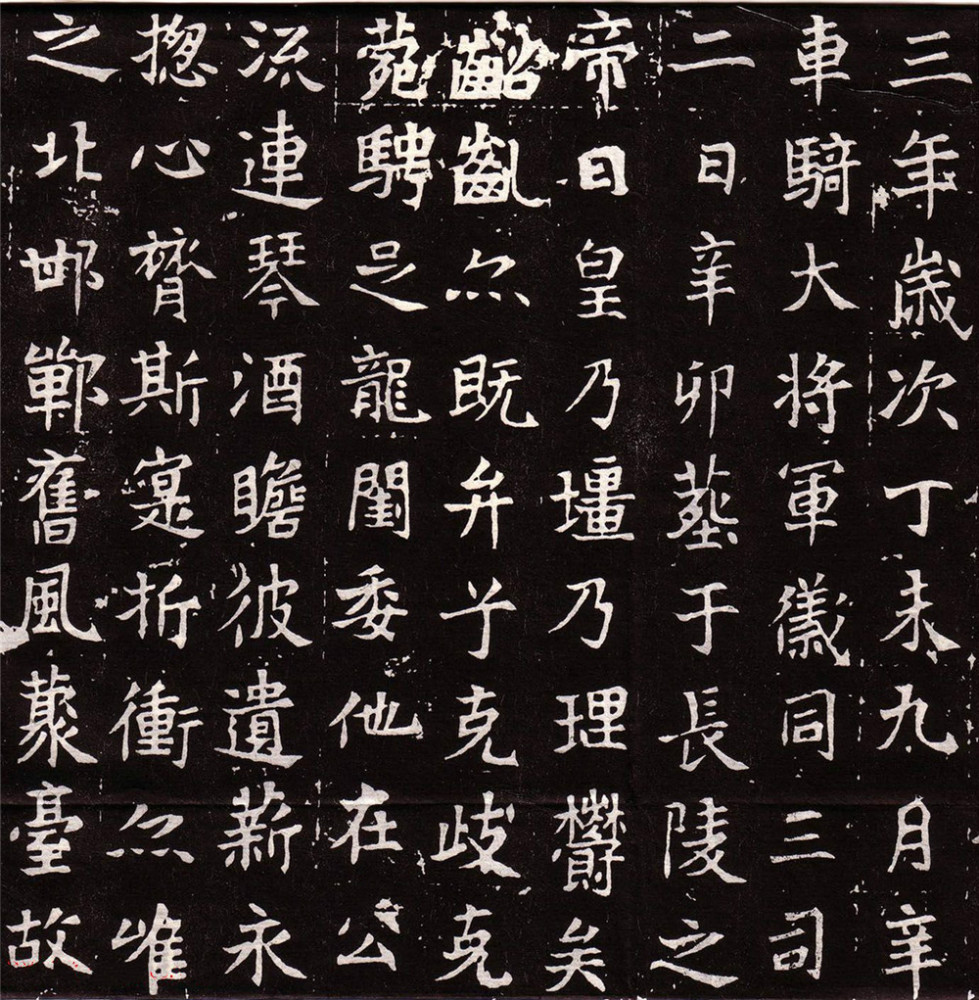 三年歲次丁未九月辛
車騎大將軍儀同三司
二日辛卯葬于長陵之
帝曰皇乃壃乃理欝矣
齠齓亦既弁兮克歧克
菀騁足龍閨委他在公
流連琴酒瞻彼遺薪永
揔心膂斯寔折衝亦唯
之北邯鄲舊風藂臺故